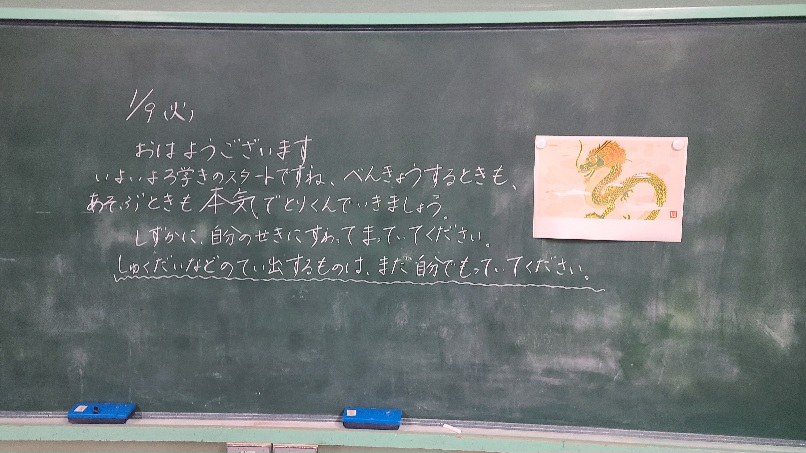 1/9(火)
おはようございます
いよいよ3学きのスタートですね、べんきょうするときも、
あそぶときも本気でとりくんでいきましょう。
しずかに、自分のせきにすわってまっていてください。
しゅくだいなどのてい出するものは、まだ自分でもっていてください。